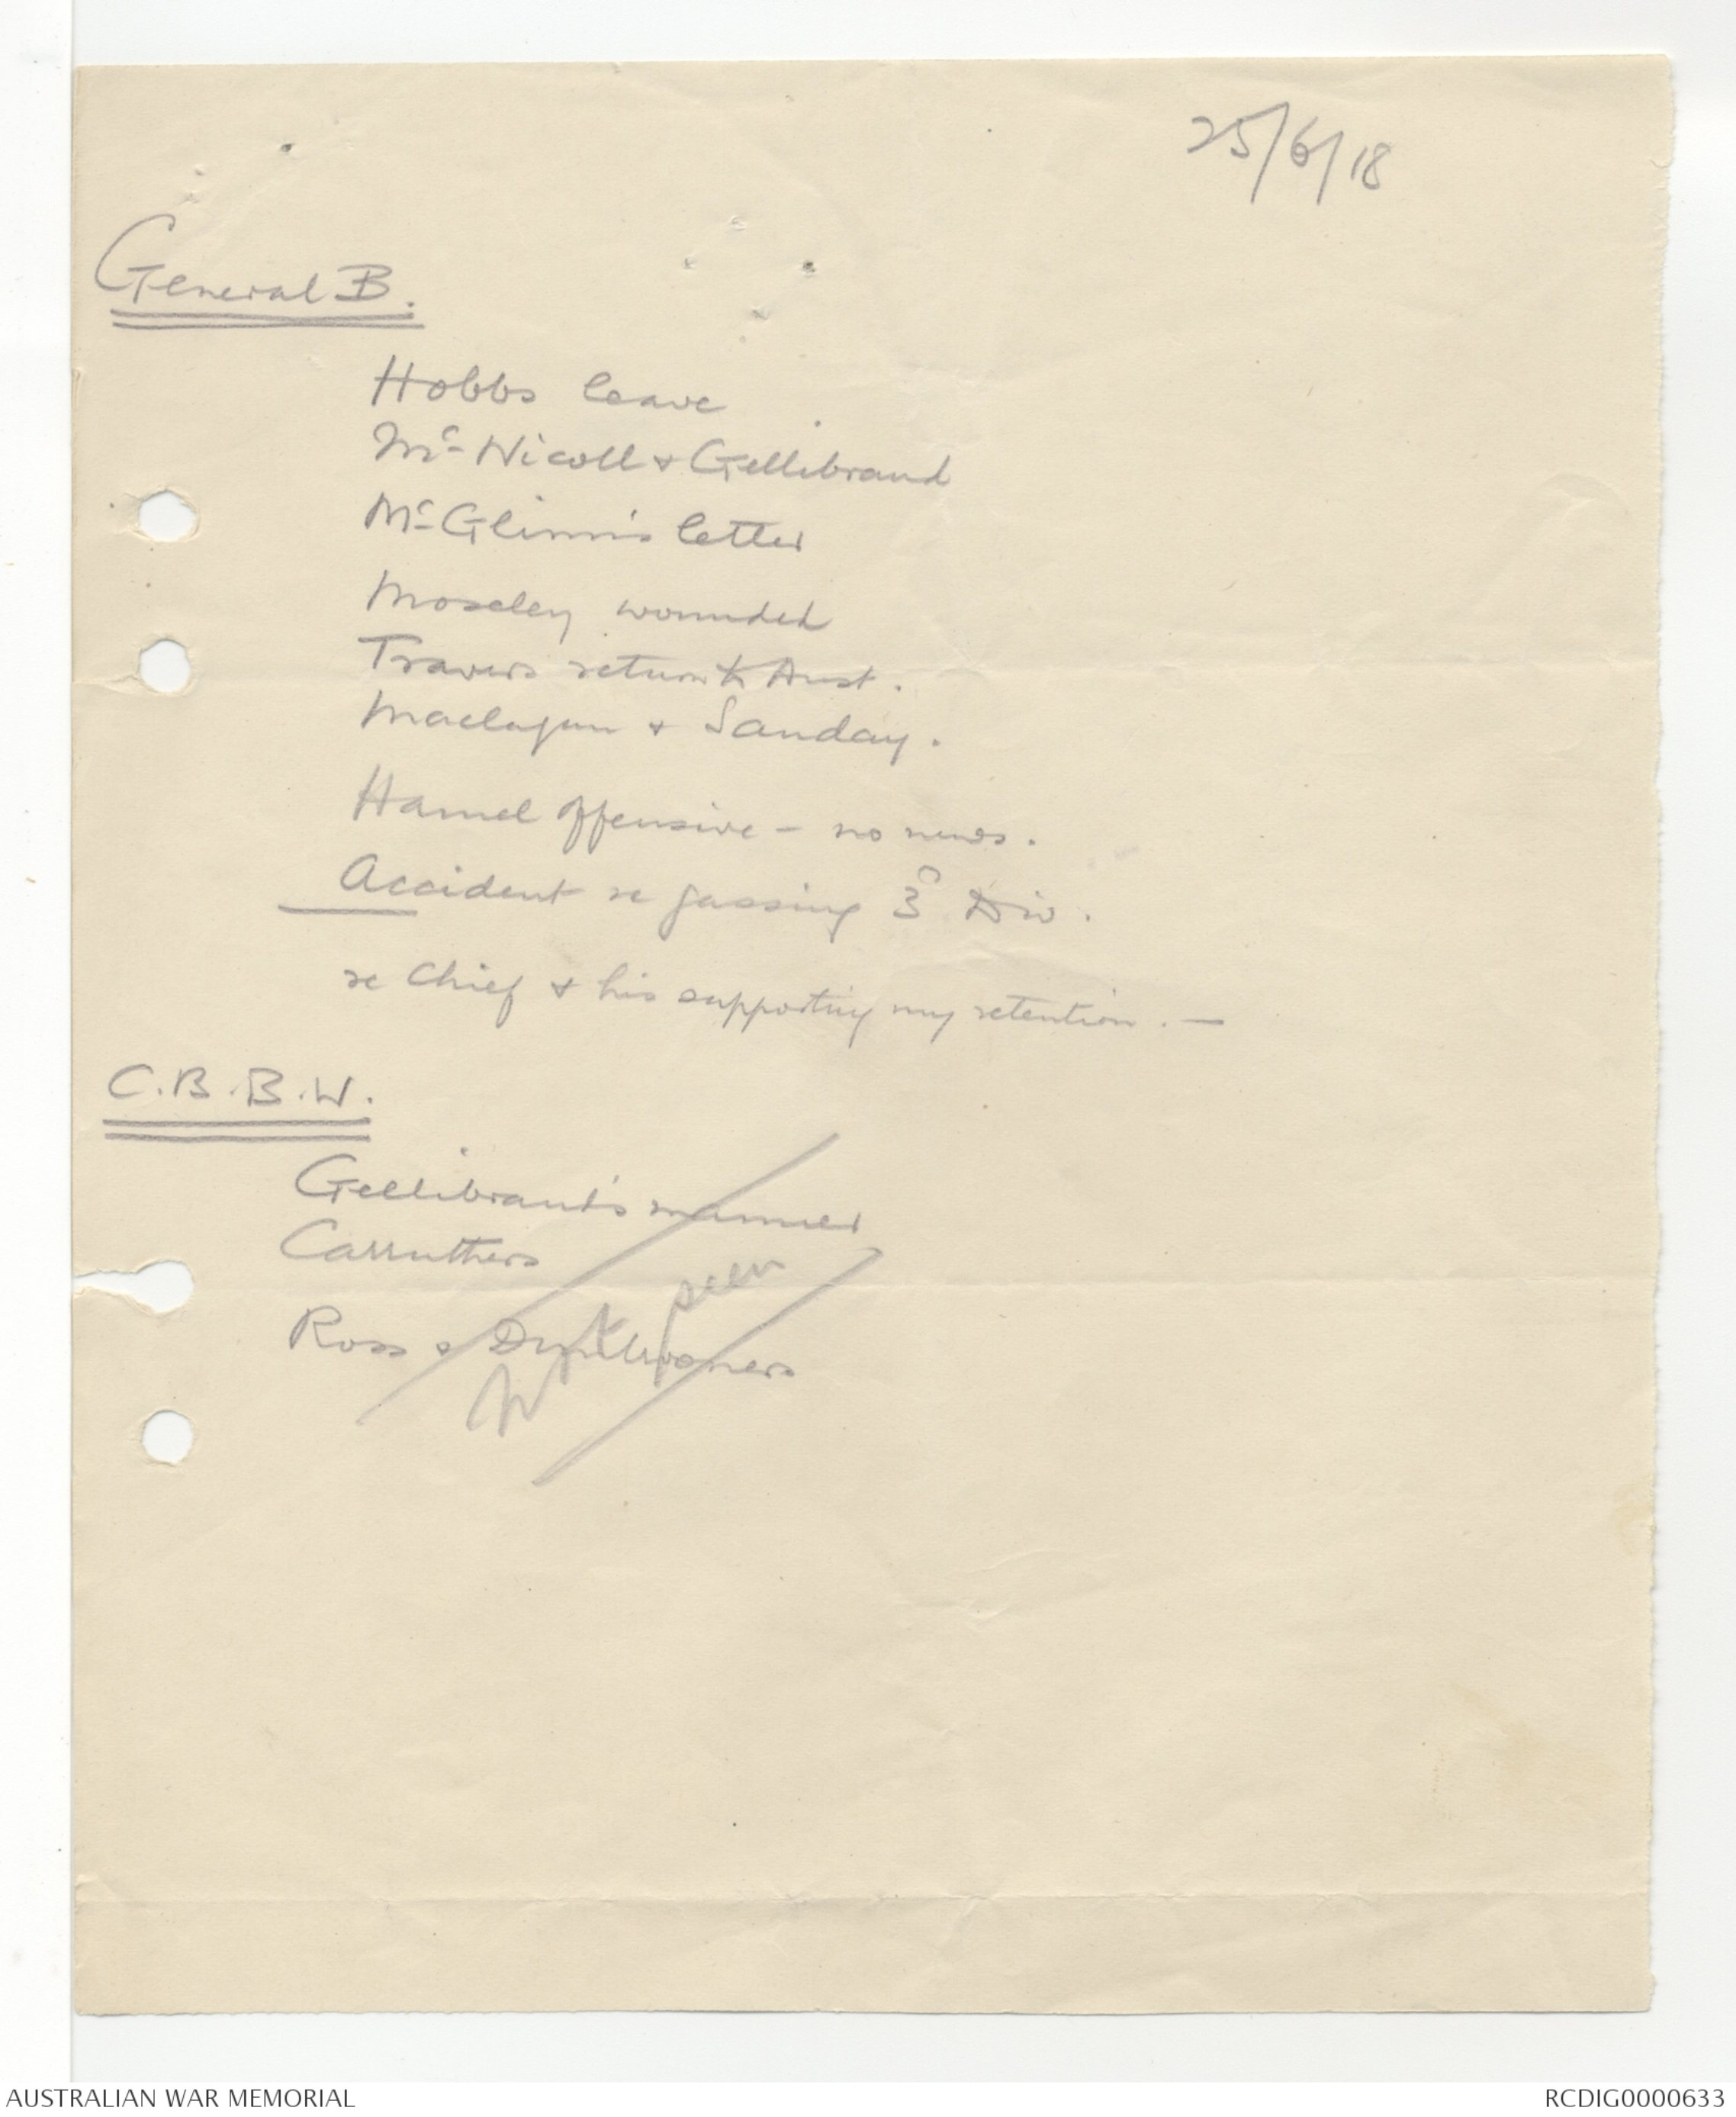 25/6/18
General B.
Hobbs leave
Mc Nicoll & Gellibrand
McGlinn's letter
Moseley wounded
Travers return to Aust.
Maclagan & Sanday.
Hamel offensive - no news.
Accident re gassing 3rd Div.
re Chief & his supporting my retention. -
C.B.B.W.
Gellibrand's manner
Carruthers
Ross &
Not seen
AUSTRALIAN WAR MEMORIAL
RCDIG0000633